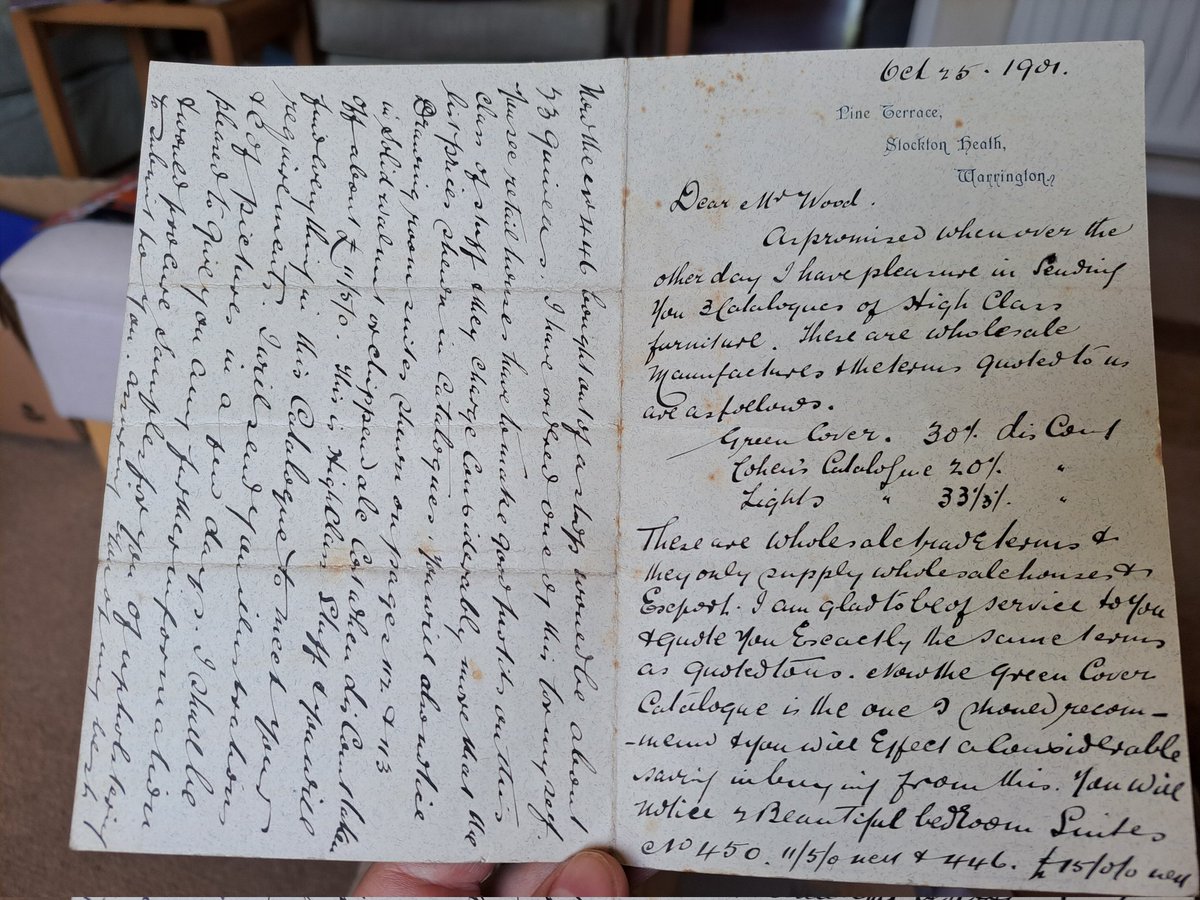 Oct 25. 1901.
Pine Terrace,
Stockton Heath,
Warrington
Dear Mr Wood.
As promised when over the
other day I have pleasure in Sending
You 3 Catalogues of High Class
furniture. These are wholesale
Manufactures & the terms quoted to us
are as follows.
Green Cover. 30% disCount
Cohen's Catalogue 20% "
Lights " 33 1/3 %. "
These are wholesale trade terms &
they only supply wholesale houses &
Export. I am glad to be of service to You
& quote You Exactly the same terms
as quoted to us. Now the Green Cover
Catalogue is the one I should recom-
-mend & you will Effect a Considerable
saving in buying from this. You will
notice 2 Beautiful bedRoom Suites
No 450. 11/5/0 nett & 446. £15/0/0 nett
Now the 446 bought out of a shop would be about
33 Guineas. I have ordered one of this for myself.
You see retail houses have to make good profits on this
class of stuff & they charge Considerably more than the
list prices Shewn in Catalogues. You will also notice
Drawing room suites Shewn on pages 112 & 113
in Solid walnut or chippendale Cost when disCount taken
off about £11/5/0. This is High Class Stuff & you will
find everything in this Catalogue to meet your
requirements. I will send you illustrations
& of pictures in a few days. I shall be
pleased to give you any further information
& would procure Samples for you of upholstering
to Submit to you. assuring you of my best